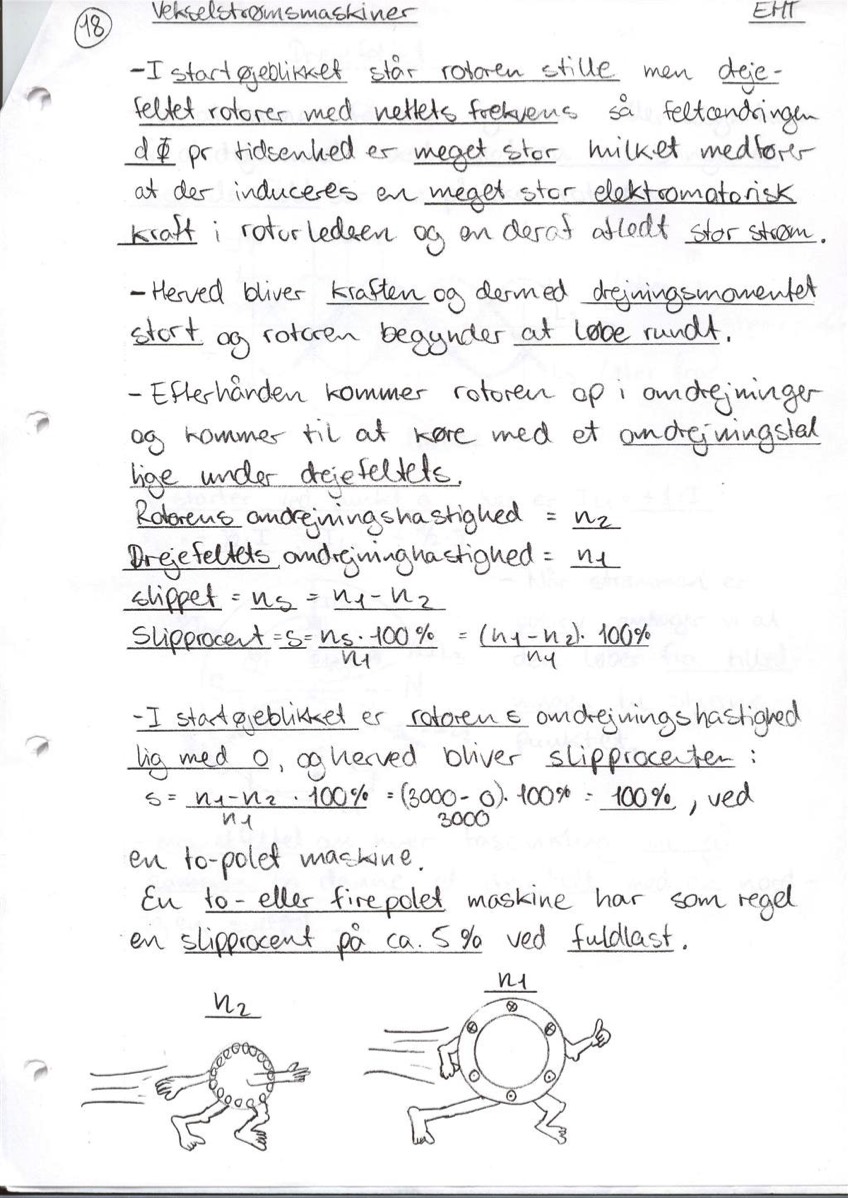 18 Vekselstrømsmaskiner EHT
-I startøjeblikket står rotoren stille men dreje-
feltet roterer med nettets frekvens så feltændringen
dΦ pr tidsenhed er meget stor hvilket medfører
at der induceres en meget stor elektromotorisk
kraft i rotorlederen og en deraf afledt stor strøm.
- Herved bliver kraften og dermed drejningsmomentet
stort og rotoren begynder at løbe rundt.
- Efterhånden kommer rotoren op i omdrejninger
og kommer til at køre med et omdrejningstal
lige under drejefeltets.
Rotorens omdrejningshastighed = n2
Drejefeltets omdrejninghastighed = n1
slippet = ns = n1-n2
Slipprocent = s = ns · 100% / n1 = (n1-n2) · 100% / n1
-I startøjeblikket er rotorens omdrejningshastighed
lig med 0, og herved bliver slipprocenten :
s = n1-n2 · 100% / n1 = (3000 - 0) · 100% / 3000 = 100%, ved
en to-polet maskine.
En to- eller firepolet maskine har som regel
en slipprocent på ca. 5% ved fuldlast.
n2 n1